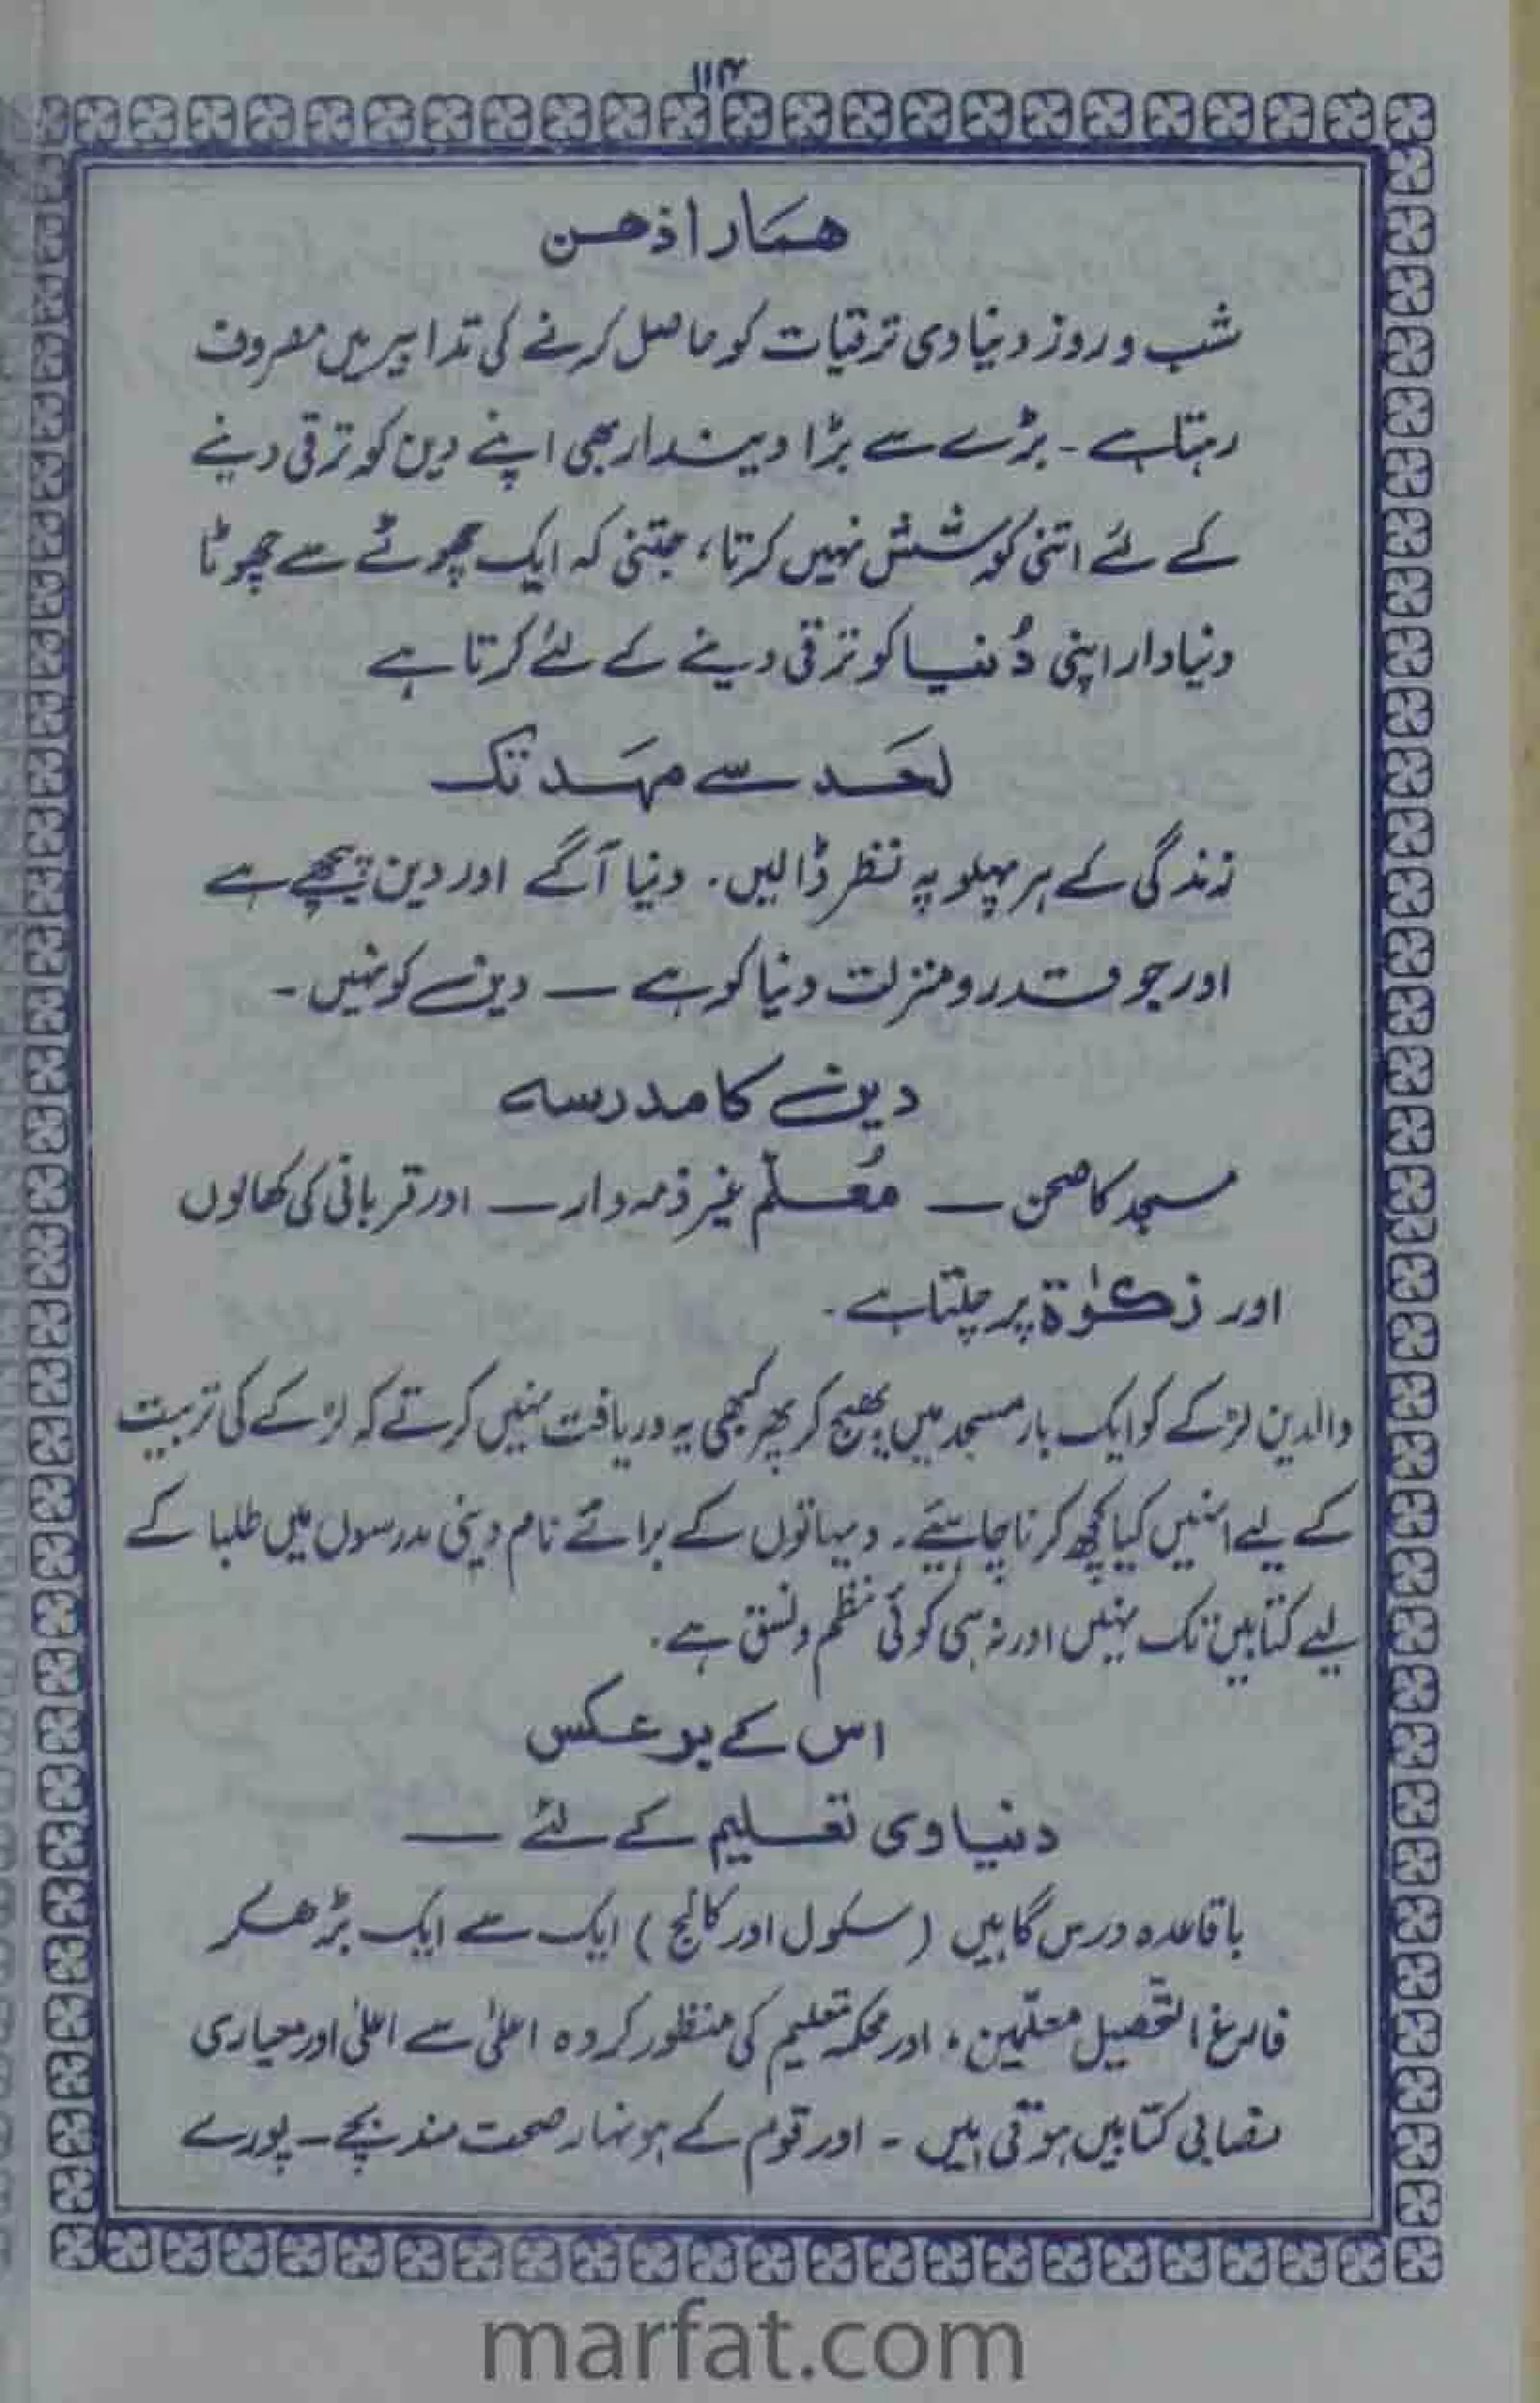 ۱۱۴
ھمارا ذھن
شب و روز دنیاوی ترقیات کو حاصل کرنے کی تدابیر میں مصروف
رہتا ہے ۔ بڑے سے بڑا دیندار بھی اپنے دین کو ترقی دینے
کے لئے اتنی کوشش نہیں کرتا ، جتنی کہ ایک چھوٹے سے چھوٹا
دنیادار اپنی دُنیا کو ترقی دینے کے لئے کرتا ہے
لحَد سے مہَد تک
زندگی کے ہر پہلو پہ نظر ڈالیں ۔ دنیا آگے اور دین پیچھے ہے
اور جو قدر و منزلت دنیا کو ہے — دین کو نہیں ۔
دین کا مدرسہ
مسجد کا صحن — مُعلّم غیر ذمہ دار — اور قربانی کی کھالوں
اور زکوٰۃ پر چلتا ہے ۔
والدین لڑکے کو ایک بار مسجد میں بھیج کر پھر کبھی یہ دریافت نہیں کرتے کہ لڑکے کی تربیت
کے لیے انہیں کیا کچھ کرنا چاہیئے ۔ دیہاتوں کے برائے نام دینی مدرسوں میں طلبا کے
لیے کتابیں تک نہیں اور نہ ہی کوئی نظم و نسق ہے ۔
اس کے بر عکس
دنیاوی تعلیم کے لئے —
باقاعدہ درس گاہیں ( سکول اور کالج ) ایک سے ایک بڑھ کر
فارغ التحصیل معلّمین ، اور محکمہ تعلیم کی منظور کردہ اعلیٰ سے اعلیٰ اور معیاری
نصابی کتابیں ہوتی ہیں ۔ اور قوم کے ہونہار صحت مند بچے — پورے
marfat.com